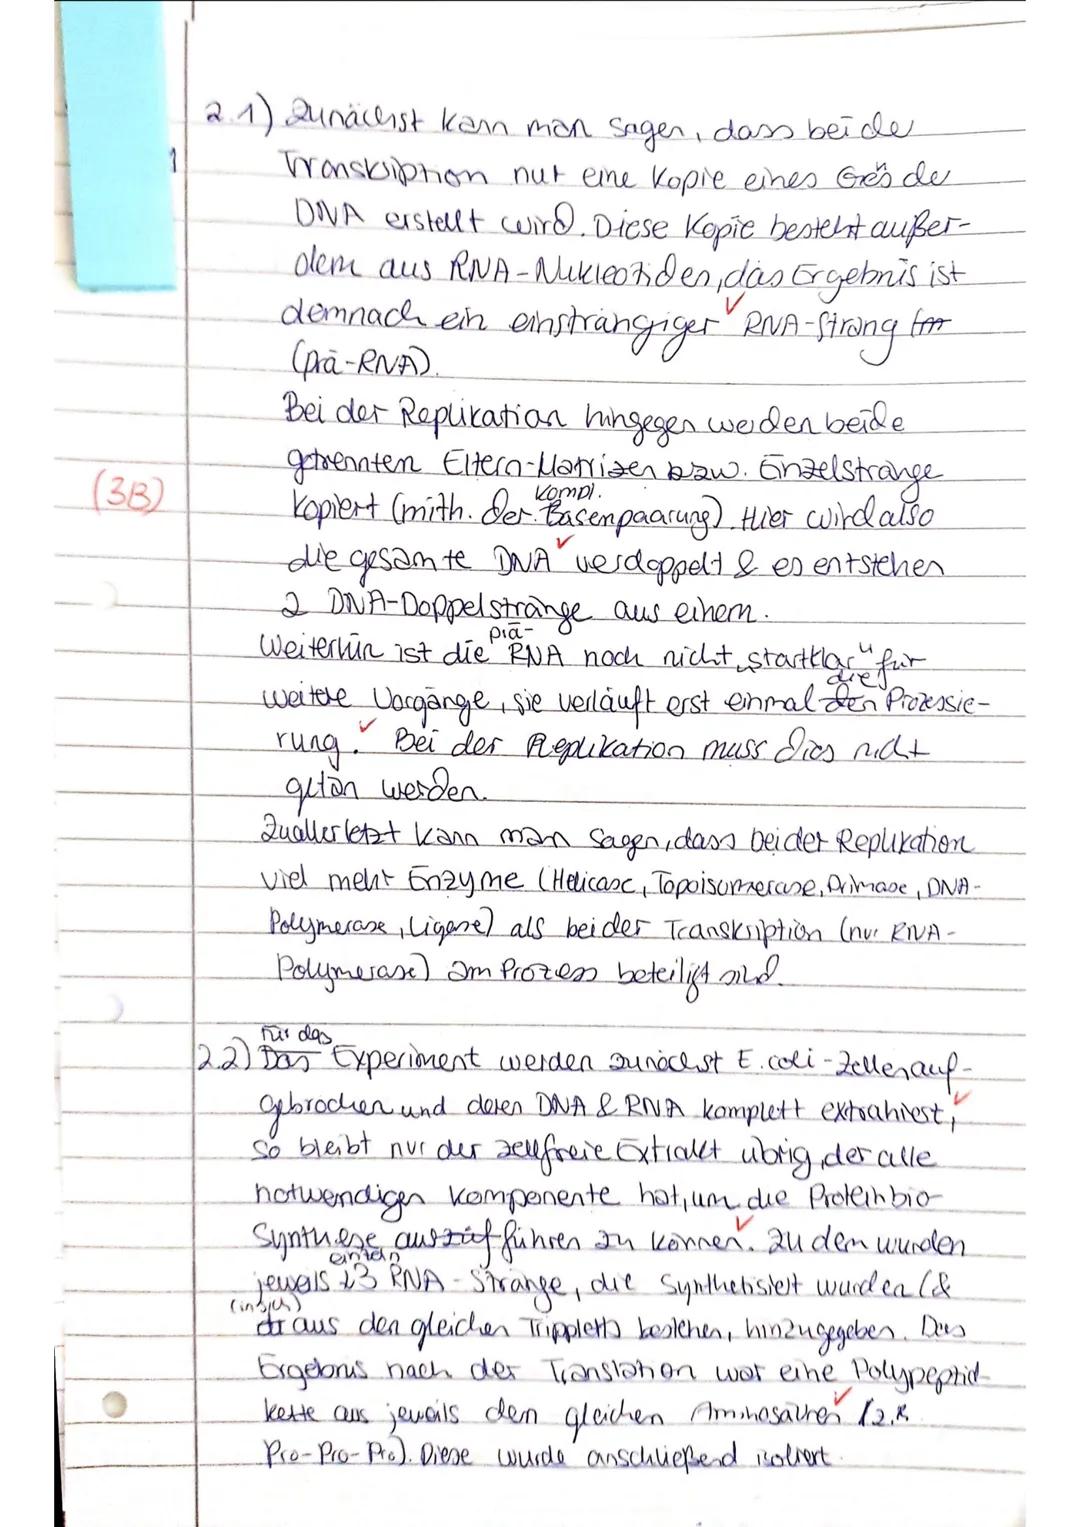 2.1) Zunächst kann man sagen, dass bei der
1
Transkiption nur eine Kopie eines Gens der
DNA erstellt wird. Diese Kopie besteht außer-
dem aus RNA-Nukleotiden, das Ergebnis ist
demnach ein einsträngiger RNA-Strang
(prä-RNA).
Bei der Replikation hingegen werden beide
getrennten Eltern-Matrizen bzw. Einzelstränge
(3B)
kompl.
kopiert (mith. der Basenpaarung). Hier wird also
die gesamte DNA verdoppelt & es entstehen
2 DNA-Doppelstränge aus einem.
prä-
Weiterhin ist die RNA noch nicht „startklar" für
die
weitere Vorgänge, sie verläuft erst einmal den Prozessie-
rung. Bei der Replikation muss dies nicht
getan werden.
Zuallerletzt kann man sagen, dass bei der Replikation
viel mehr Enzyme (Helicase, Topoisomerase, Primase, DNA-
Polymerase, Ligase) als bei der Transkiption (nur RNA-
Polymerase) am Prozess beteiligt sind.
Für das
2.2) Das Experiment werden zunächst E. coli-Zellen auf-
gebrochen und deren DNA & RNA komplett extrahiert,
so bleibt nur der zellfreie Extrakt übrig, der alle
notwendigen Komponente hat, um die Proteinbio-
synthese ausführen zu können. Zudem wurden
jeweils RNA-Stränge, die synthetisiert wurden (&
(in sich)
aus den gleichen Tripletts bestehen, hinzugegeben. Das
Ergebnis nach der Translation war eine Polypeptid-
kette aus jeweils den gleichen Aminosäuren (z.B.
Pro-Pro-Pro). Diese wurde anschließend isoliert.